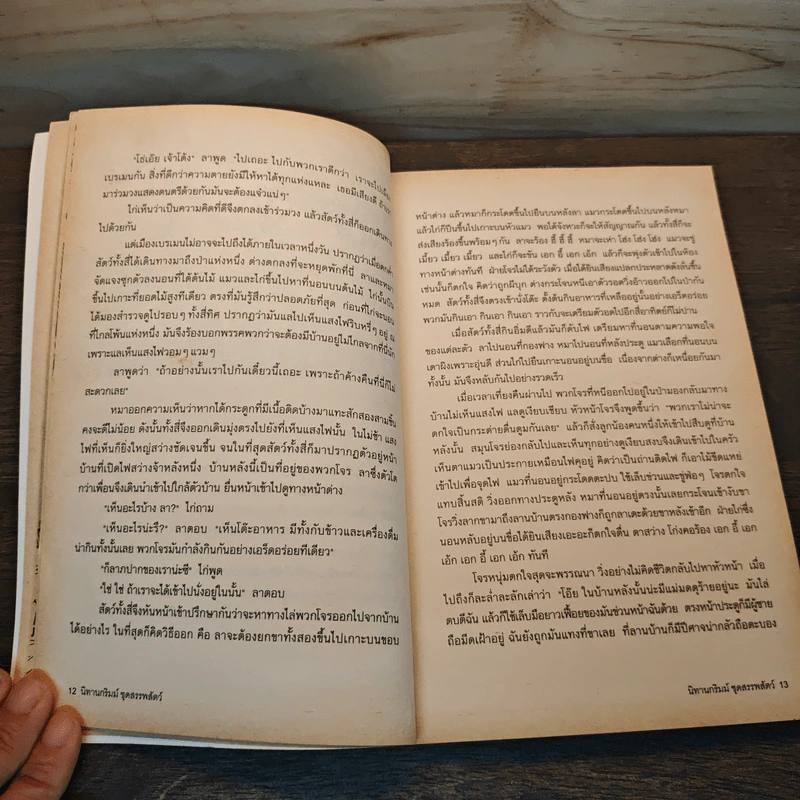 "โธ่เอ๊ย เจ้าโต้ง" ลาพูด "ไปเถอะ ไปกับพวกเราดีกว่า เราจะไปเมือง
เบรเมนกัน สิ่งที่ดีกว่าความตายยังมีให้หาได้ทุกแห่งแหละ เธอมีเสียงดี ถ้า
มาร่วมวงแสดงดนตรีด้วยกันมันจะต้องแจ๋วแน่ๆ"
ไก่เห็นว่าเป็นความคิดที่ดีจึงตกลงเข้าร่วมวง แล้วสัตว์ทั้งสี่ก็ออกเดินทาง
ไปด้วยกัน
แต่เมืองเบรเมนไม่อาจจะไปถึงได้ภายในเวลาหนึ่งวัน ปรากฏว่าเมื่อตกค่ำ
สัตว์ทั้งสี่ได้เดินทางมาถึงป่าแห่งหนึ่ง ต่างตกลงที่จะหยุดพักที่นี่ ลาและหมา
จัดแจงซุกตัวลงนอนที่ใต้ต้นไม้ แมวและไก่ขึ้นไปหาที่นอนบนต้นไม้ ไก่นั้นบิน
ขึ้นไปเกาะที่ยอดไม้สูงทีเดียว ตรงที่มันรู้สึกว่าปลอดภัยที่สุด ก่อนที่ไก่จะนอน
ได้มองสำรวจดูไปรอบๆ ทั้งสี่ทิศ ปรากฏว่ามันแลไปเห็นแสงไฟริบหรี่ๆ อยู่ ณ
ที่ไกลโพ้นแห่งหนึ่ง มันจึงร้องบอกพรรคพวกว่าจะต้องมีบ้านอยู่ไม่ไกลจากที่นี่นัก
เพราะแลเห็นแสงไฟวอมๆ แวมๆ
ลาพูดว่า "ถ้าอย่างนั้นเราไปกันเดี๋ยวนี้เถอะ เพราะถ้าค้างคืนที่นี่ก็ไม่
สะดวกเลย"
หมาออกความเห็นว่าหากได้กระดูกที่มีเนื้อติดบ้างมาแทะสักสองสามชิ้น
คงจะดีไม่น้อย ดังนั้นทั้งสี่จึงออกเดินมุ่งตรงไปยังที่เห็นแสงไฟนั้น ในไม่ช้า แสง
ไฟที่เห็นก็ยิ่งใหญ่สว่างชัดเจนขึ้น จนในที่สุดสัตว์ทั้งสี่ก็มาปรากฏตัวอยู่หน้า
บ้านที่เปิดไฟสว่างจ้าหลังหนึ่ง บ้านหลังนี้เป็นที่อยู่ของพวกโจร ลาซึ่งตัวโต
กว่าเพื่อนจึงเดินนำเข้าไปใกล้ตัวบ้าน ยื่นหน้าเข้าไปดูทางหน้าต่าง
"เห็นอะไรบ้าง ลา?" ไก่ถาม
"เห็นอะไรน่ะรึ?" ลาตอบ "เห็นโต๊ะอาหาร มีทั้งกับข้าวและเครื่องดื่ม
น่ากินทั้งนั้นเลย พวกโจรมันกำลังกินกันอย่างเอร็ดอร่อยทีเดียว"
"ก็ลาภปากของเราน่ะซี" ไก่พูด
"ใช่ ใช่ ถ้าเราจะได้เข้าไปนั่งอยู่ในนั้น" ลาตอบ
สัตว์ทั้งสี่จึงหันหน้าเข้าปรึกษากันว่าจะหาทางไล่พวกโจรออกไปจากบ้าน
ได้อย่างไร ในที่สุดก็คิดวิธีออก คือ ลาจะต้องยกขาทั้งสองขึ้นไปเกาะบนขอบ
12 นิทานกริมม์ ชุดสรรพสัตว์
หน้าต่าง แล้วหมาก็กระโดดขึ้นไปยืนบนหลังลา แมวกระโดดขึ้นไปบนหลังหมา
แล้วไก่ก็บินขึ้นไปเกาะบนหัวแมว พอได้จังหวะก็จะให้สัญญาณกัน แล้วทั้งสี่ก็จะ
ส่งเสียงร้องขึ้นพร้อมๆ กัน ลาจะร้อง ฮี้ ฮี้ ฮี้ หมาจะเห่า โฮ่ง โฮ่ง โฮ่ง แมวจะขู่
เมี้ยว เมี้ยว เมี้ยว และไก่ก็จะขัน เอก อี้ เอก เอ้ก แล้วก็จะพุ่งตัวเข้าไปในห้อง
ทางหน้าต่างทันที ฝ่ายโจรไม่ได้ระวังตัว เมื่อได้ยินเสียงแปลกประหลาดดังลั่นขึ้น
เช่นนั้นก็ตกใจ คิดว่าถูกผีบุก ต่างกระโจนหนีเอาตัวรอดวิ่งอ้าวออกไปในป่ากัน
หมด สัตว์ทั้งสี่จึงตรงเข้านั่งโต๊ะ ตั้งต้นกินอาหารที่เหลืออยู่นั้นอย่างเอร็ดอร่อย
พวกมันกินเอา กินเอา กินเอา ราวกับจะเตรียมตัวอดไปอีกสี่อาทิตย์ก็ไม่ปาน
เมื่อสัตว์ทั้งสี่กินอิ่มดีแล้วมันก็ดับไฟ เตรียมหาที่นอนตามความพอใจ
ของแต่ละตัว ลาไปนอนที่กองฟาง หมาไปนอนที่หลังประตู แมวเลือกที่นอนบน
เตาผิงเพราะอุ่นดี ส่วนไก่ไปยืนเกาะนอนอยู่บนขื่อ เนื่องจากต่างก็เหนื่อยกันมา
ทั้งนั้น มันจึงหลับกันไปอย่างรวดเร็ว
เมื่อเวลาเที่ยงคืนผ่านไป พวกโจรที่หนีออกไปอยู่ในป่ามองกลับมาทาง
บ้านไม่เห็นแสงไฟ แลดูเงียบเชียบ หัวหน้าโจรจึงพูดขึ้นว่า "พวกเราไม่น่าจะ
ตกใจเป็นกระต่ายตื่นตูมกันเลย" แล้วก็สั่งลูกน้องคนหนึ่งให้เข้าไปสืบดูที่บ้าน
หลังนั้น สมุนโจรย่องกลับไปและเห็นทุกอย่างดูเงียบสงบจึงเดินเข้าไปในครัว
เห็นตาแมวเป็นประกายเหมือนไฟคุอยู่ คิดว่าเป็นถ่านติดไฟ ก็เอาไม้ขีดแหย่
เข้าไปเพื่อจุดไฟ แมวที่นอนอยู่กระโดดตะปบ ใช้เล็บข่วนและขู่ฟ่อๆ โจรตกใจ
แทบสิ้นสติ วิ่งออกทางประตูหลัง หมาที่นอนอยู่ตรงนั้นเลยกระโจนเข้างับขา
โจรวิ่งลากขามาถึงลานบ้านตรงกองฟางก็ถูกลาเตะด้วยขาหลังเข้าอีก ฝ่ายไก่ซึ่ง
นอนหลับอยู่บนขื่อได้ยินเสียงเอะอะก็ตกใจตื่น ตาสว่าง โก่งคอร้อง เอก อี้ เอก
เอ้ก เอก อี้ เอก เอ้ก ทันที
โจรหนุ่มตกใจสุดจะพรรณนา วิ่งอย่างไม่คิดชีวิตกลับไปหาหัวหน้า เมื่อ
ไปถึงก็ละล่ำละลักเล่าว่า "โอ๊ย ในบ้านหลังนั้นน่ะมีแม่มดดุร้ายอยู่นะ มันไล่
ตบตีฉัน แล้วก็ใช้เล็บมือยาวเฟื้อยของมันข่วนหน้าฉันด้วย ตรงหน้าประตูก็มีผู้ชาย
ถือมีดเฝ้าอยู่ ฉันยังถูกมันแทงที่ขาเลย ที่ลานบ้านก็มีปีศาจน่ากลัวถือตะบอง
นิทานกริมม์ ชุดสรรพสัตว์ 13